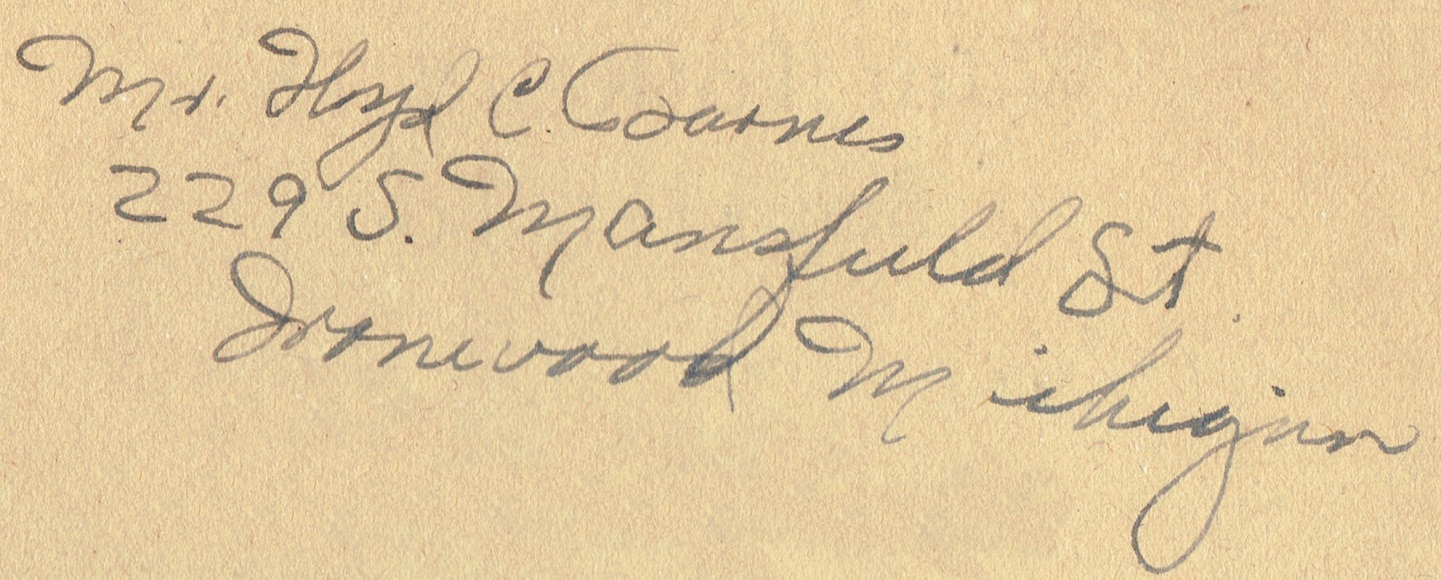 Mr. Floyd C.
229 S. Mansfield St.
Ironwood Michigan